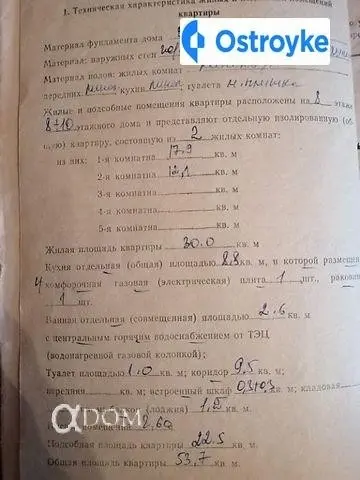 Ostroyke
1. Техническая характеристика жилых и подсобных помещений
квартиры
Материал фундамента дома
Материал: наружных стен
Материал полов: жилых комнат
передних кухни туалета
Жилые и подсобные помещения квартиры расположены на 8 этаже
8÷10 этажного дома и представляют отдельную изолированную (об-
щую) квартиру, состоящую из 2 жилых комнат:
из них: 1-я комната 17.9 кв. м
2-я комната 12,1 кв. м
3-я комната кв. м
4-я комната кв. м
5-я комната кв. м
Жилая площадь квартиры 30.0 кв. м
Кухня отдельная (общая) площадью 8.8 кв. м, в которой размещена
4 комфорочная газовая (электрическая) плита 1 шт., раковин
1 шт.
Ванная отдельная (совмещенная) площадью 2.6 кв. м
с центральным горячим водоснабжением от ТЭЦ
(водонагревной газовой колонкой);
Туалет площадью 1.0 кв. м; коридор 9.5 кв. м;
передняя кв. м; встроенный шкаф 0,3+0,3 кв. м; кладовая
(лоджия) кв. м;
αДОМ
Подсобная площадь квартиры 22.5 кв. м
Общая площадь квартиры 53,7 кв. м.